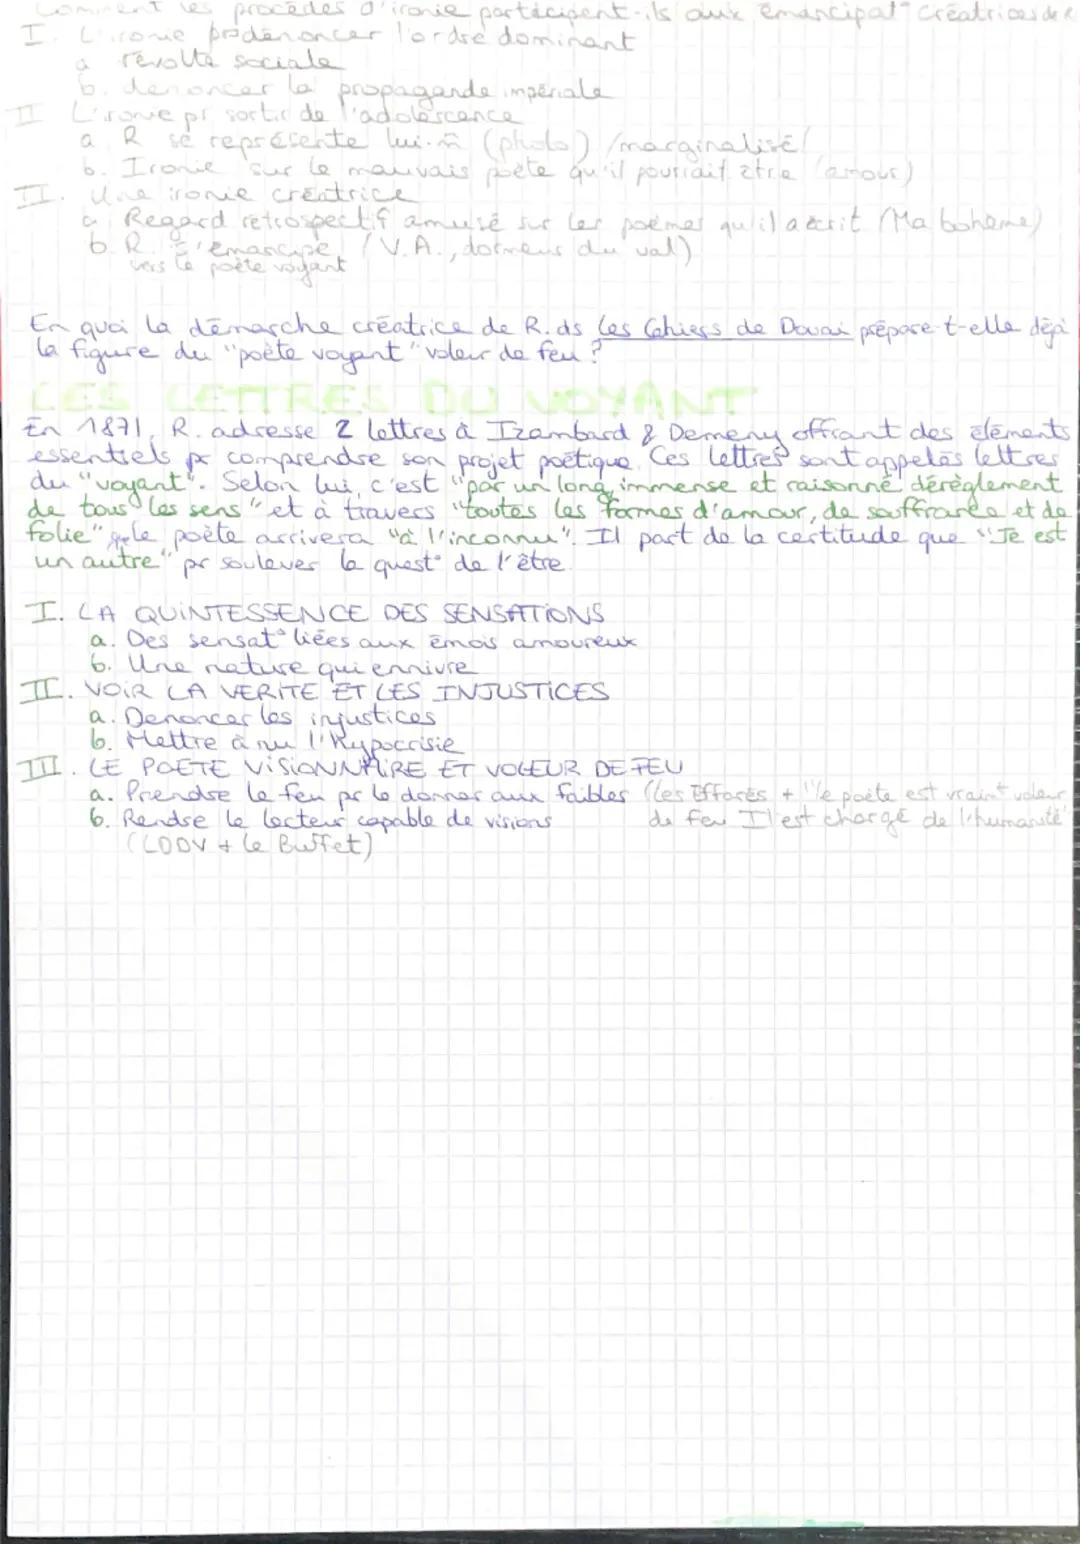 Comment les procédés d'ironie participent-ils aux émancipat° créatrices de R
I. L'ironie pr dénoncer l'ordre dominant
a révolte sociale
b. dénoncer la propagande impériale
II L'ironie pr sortir de l'adolescence
a R se représente lui-m̂ (photo) /marginalisé/
b. Ironie sur le mauvais poète qu'il pourrait être (amour)
II. Une ironie créatrice
a Regard rétrospectif amusé sur les poèmes qu'il a écrit (Ma bohème)
b. R. s'émancipe (V.A., dormeur du val)
vers le poète voyant
En quoi la démarche créatrice de R. ds Les Cahiers de Douai prépare-t-elle déjà
la figure du "poète voyant" voleur de feu ?
LES LETTRES DU VOYANT
En 1871, R. adresse 2 lettres à Izambard & Demeny offrant des éléments
essentiels pr comprendre son projet poétique. Ces lettres sont appelés lettres
du "voyant". Selon lui, c'est "par un long, immense et raisonné dérèglement
de tous les sens" et à travers "toutes les formes d'amour, de souffrance et de
folie" que le poète arrivera "à l'inconnu". Il part de la certitude que "Je est
un autre" pr soulever la quest° de l'être.
I. LA QUINTESSENCE DES SENSATIONS
a. Des sensat° liées aux émois amoureux
b. Une nature qui ennivre
II. VOIR LA VERITE ET LES INJUSTICES
a. Dénoncer les injustices
b. Mettre à nu l'hypocrisie
III. LE POETE VISIONNAIRE ET VOLEUR DE FEU
a. Prendre le feu pr le donner aux faibles (Les Effarés + "le poète est vraimt voleur
de feu Il est chargé de l'humanité"
b. Rendre le lecteur capable de visions
(LDDV + Le Buffet)